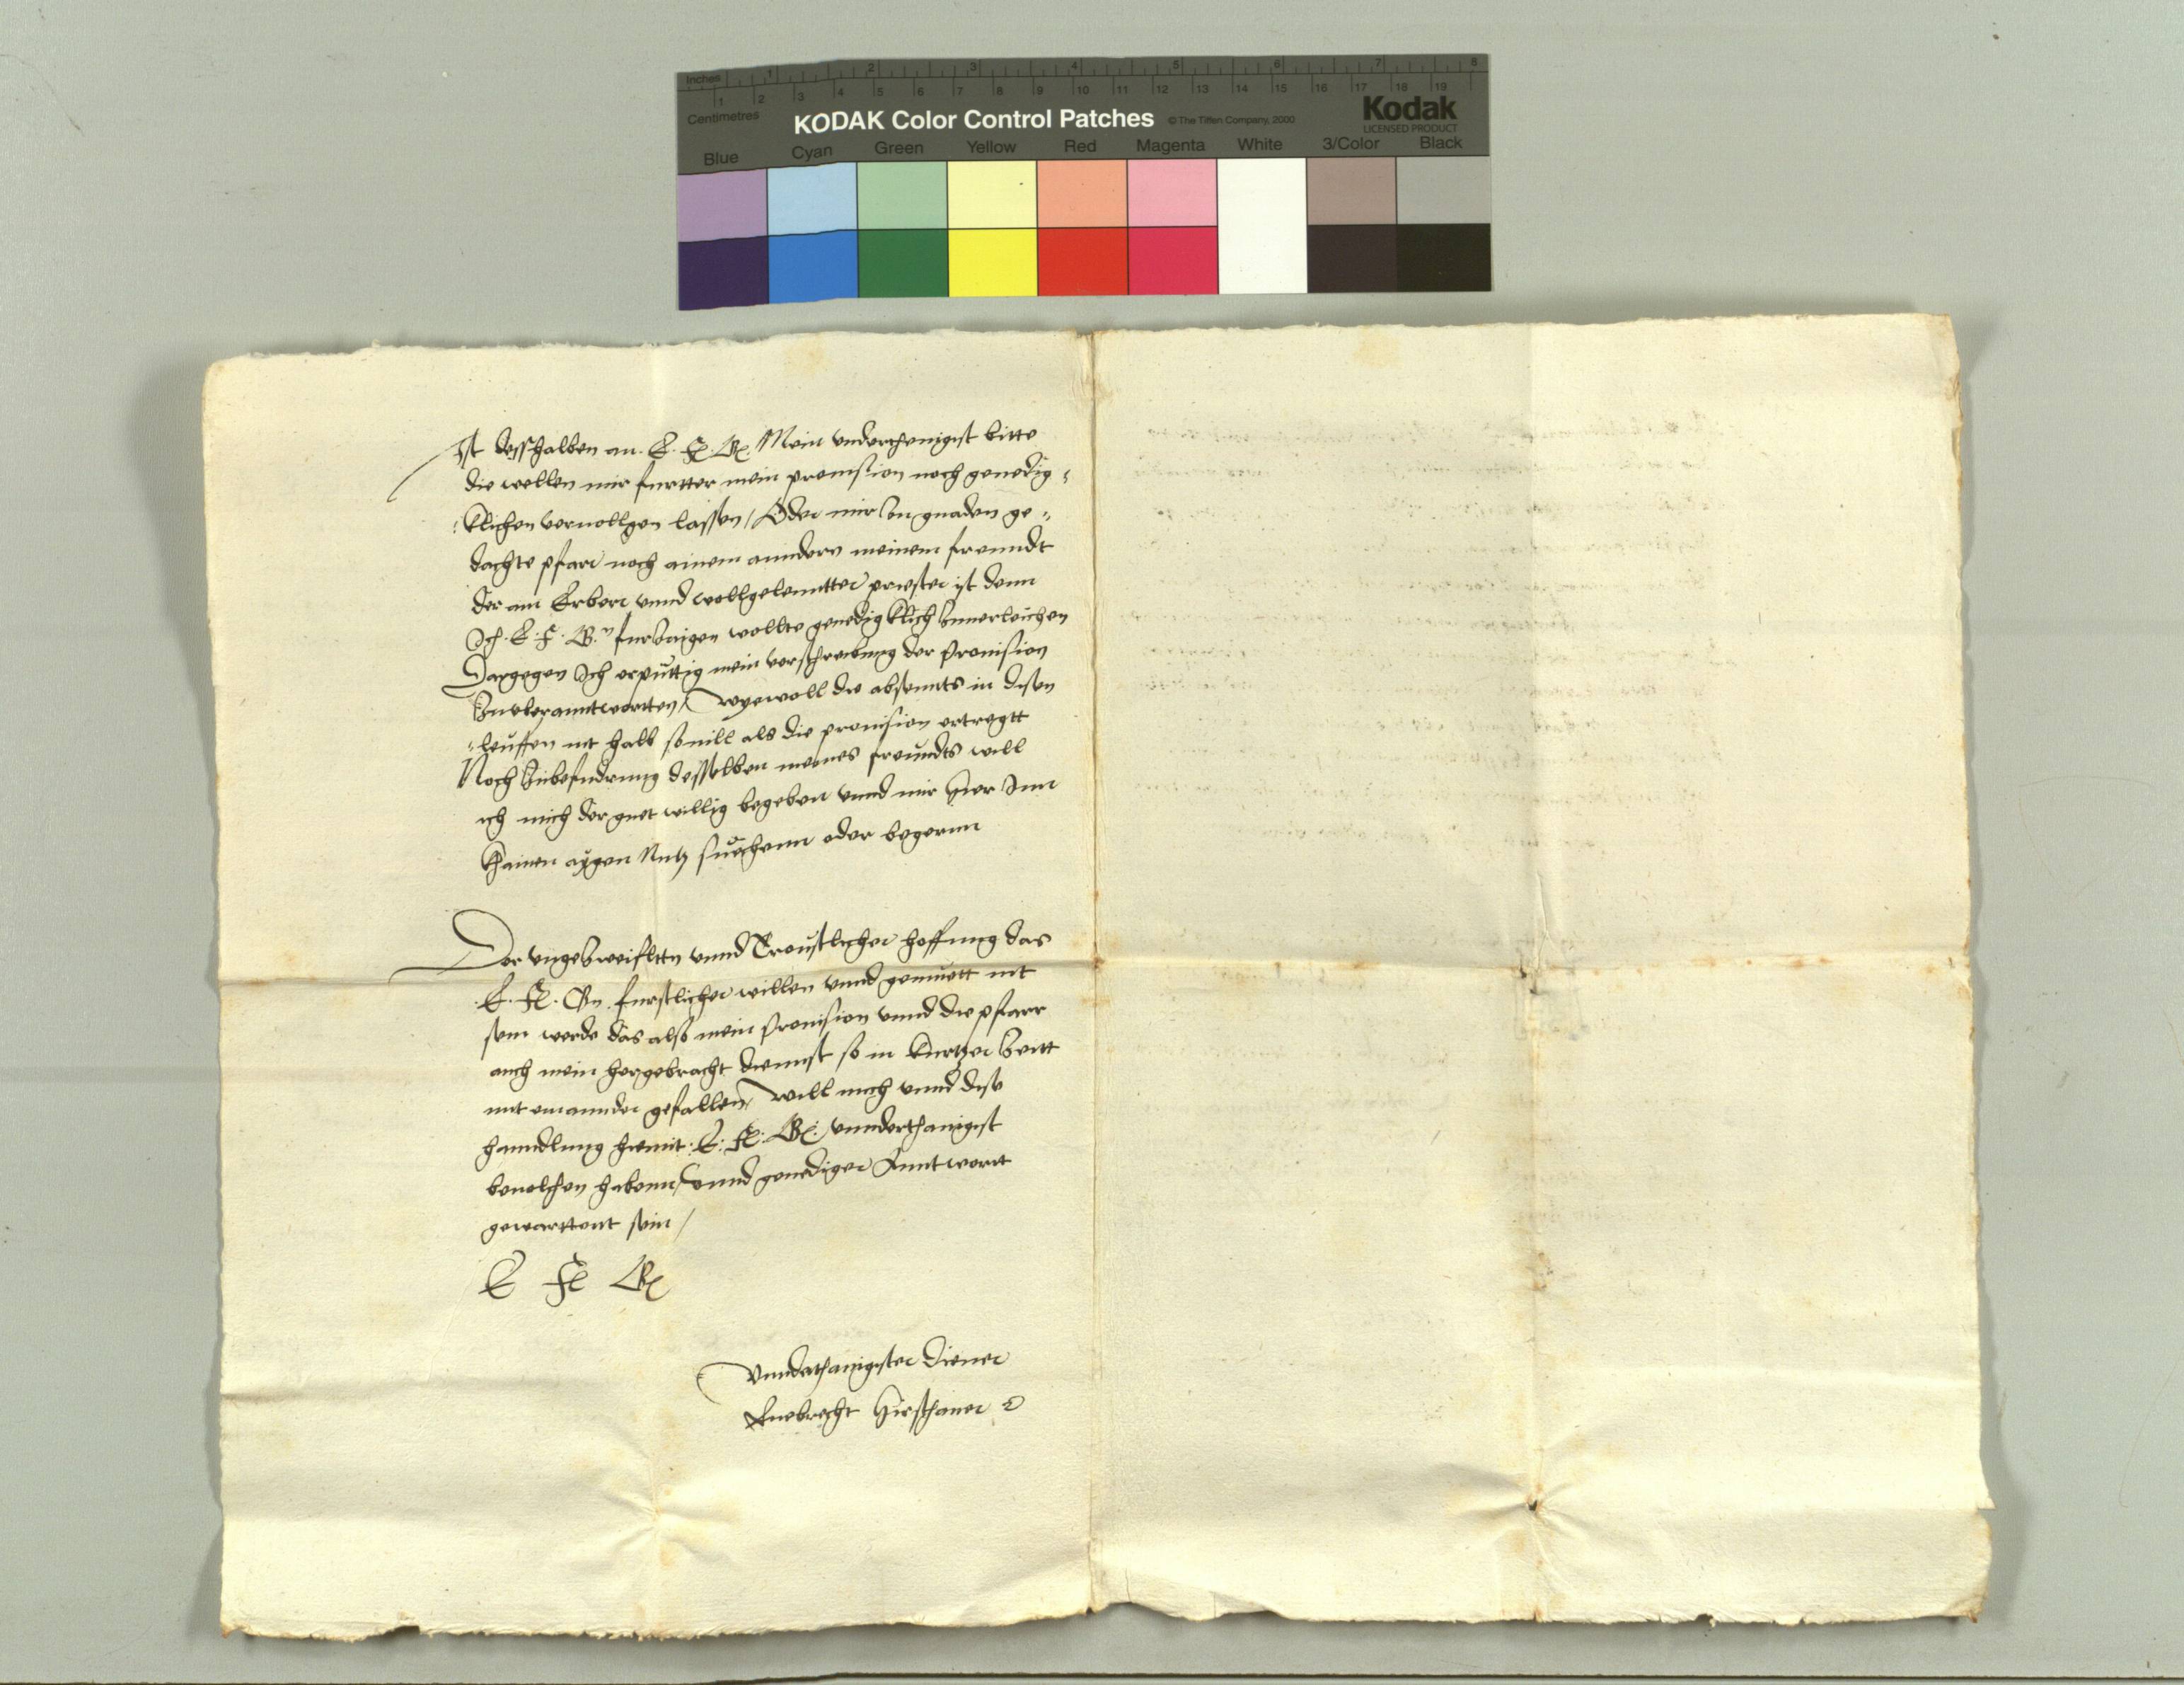 Inches 1 2 3 4 5 6 7 8
Centimetres 1 2 3 4 5 6 7 8 9 10 11 12 13 14 15 16 17 18 19
KODAK Color Control Patches © The Tiffen Company, 2000 Kodak
LICENSED PRODUCT
Blue Cyan Green Yellow Red Magenta White 3/Color Black
Ist desshalben an. E. F. G. Mein underthenigist bitte
die wellen mir furtter mein provision noch genedig=
=klichen vervollgen lassen / Oder mir Inn gnaden ge=
dachte pfarr noch ainem anndern meinem freundt
der ain Erberr unnd wollgelerntter priester ist denn
Ich. E. F. G.n furzaigen wollte genedigklich zuverleichen
Dargegen Ich erpüttig mein verschreibung der provision
zuuberanntwortten / wyewoll die absennts in disen
=leuffen nit halb sovill als die provision ertregtt
Noch zubefudrung desselben meines freundts will
ich mich der guet willig begeben unnd mir hier Inn
khainen aÿgen Nutz suechenn oder begernn
Der ungezweifltten unnd Trostlicher hoffnung das
E. F. Gn furstlicher willen unnd gemuett nit
sein werde das also mein provision unnd die pfarr
auch mein hergebracht diennst so in kurtzer zeitt
mit einannder gefallen, will mich unnd dise
hanndlung hiemit: E: F: G: unnderthanigist
bevolhen habenn, unnd genediger Anntwortt
gewarttent sein /
E F G
Unnderthanigister diener
Ruebrecht Hirsthamer